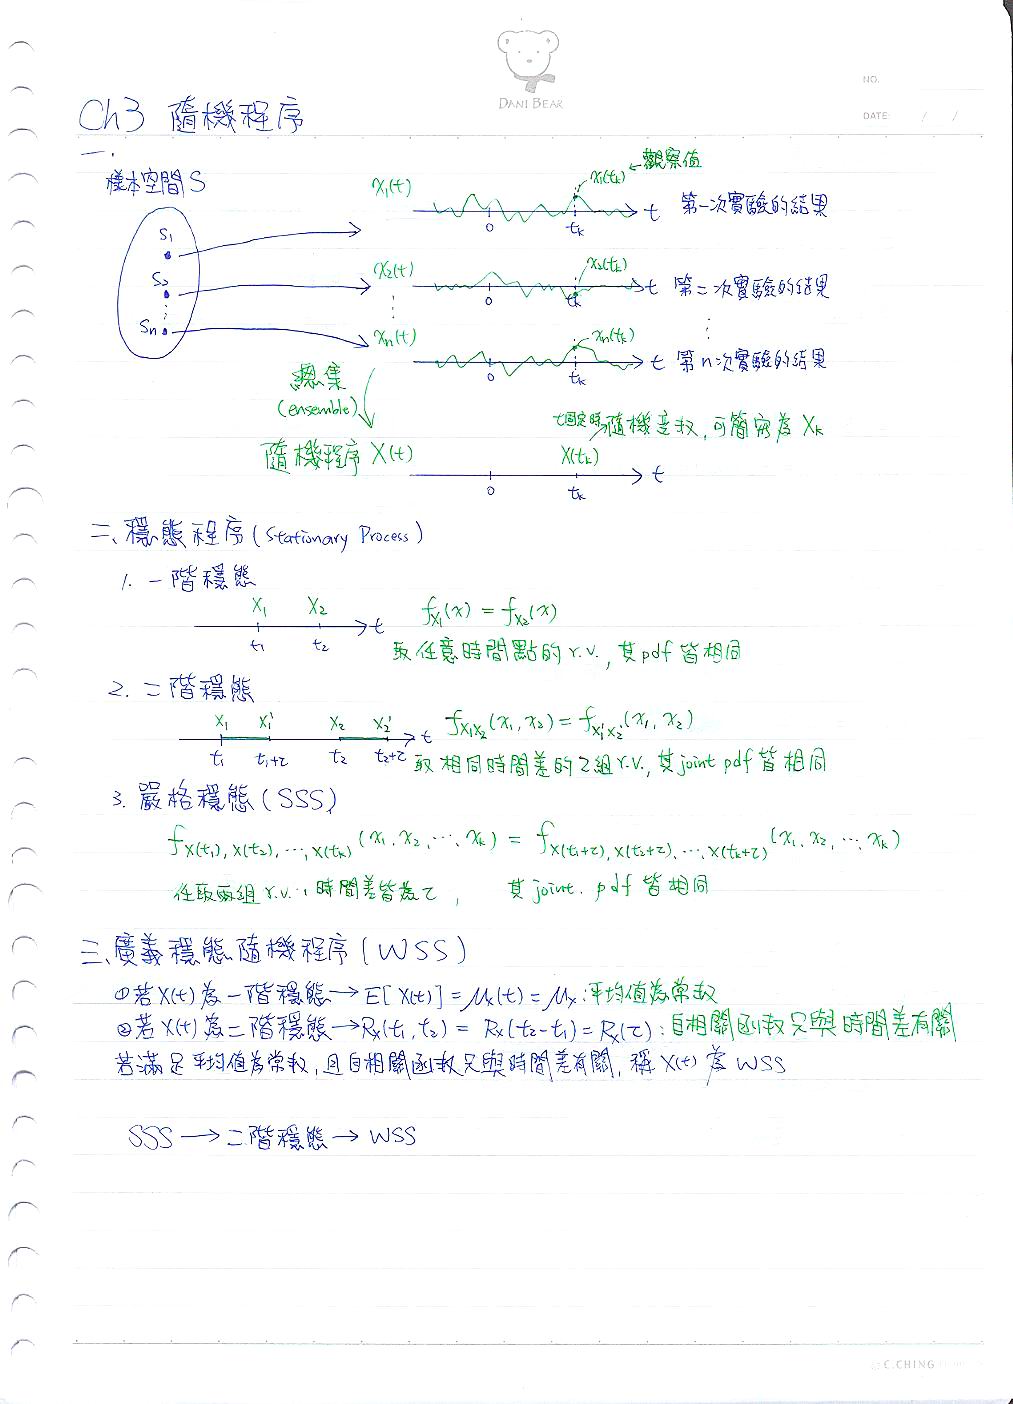 DANI BEAR
NO.
DATE: / /
Ch3 隨機程序
一、
樣本空間 S
S₁
S₂
⋮
Sₙ
x₁(t) x₁(tₖ) ←觀察值
0 tₖ t 第一次實驗的結果
x₂(t) x₂(tₖ)
0 tₖ t 第二次實驗的結果
⋮ ⋮
xₙ(t) xₙ(tₖ)
0 tₖ t 第n次實驗的結果
總集
(ensemble)
t固定時 隨機變数, 可簡寫為 Xₖ
隨機程序 X(t) X(tₖ)
0 tₖ t
二、穩態程序(Stationary Process)
1. 一階穩態
X₁ X₂ t
t₁ t₂
f_X₁(x) = f_X₂(x)
取任意時間點的 r.v., 其pdf皆相同
2. 二階穩態
X₁ X₁' X₂ X₂' t
t₁ t₁+τ t₂ t₂+τ
f_X₁X₂(x₁, x₂) = f_X₁'X₂'(x₁, x₂)
取相同時間差的2組r.v., 其joint pdf皆相同
3. 嚴格穩態(SSS)
f_X(t₁), X(t₂), ⋯, X(tₖ) (x₁, x₂, ⋯, xₖ) = f_X(t₁+τ), X(t₂+τ), ⋯, X(tₖ+τ) (x₁, x₂, ⋯, xₖ)
任取兩組 r.v., 時間差皆為τ, 其joint. pdf皆相同
三、廣義穩態隨機程序(WSS)
①若X(t)為一階穩態→E[X(t)] = μₓ(t) = μₓ:平均值為常数
②若X(t)為二階穩態→Rₓ(t₁, t₂) = Rₓ(t₂-t₁) = Rₓ(τ):自相關函数只與時間差有關
若滿足平均值為常数, 且自相關函数只與時間差有關, 稱X(t)為WSS
SSS → 二階穩態 → WSS
C.CHING